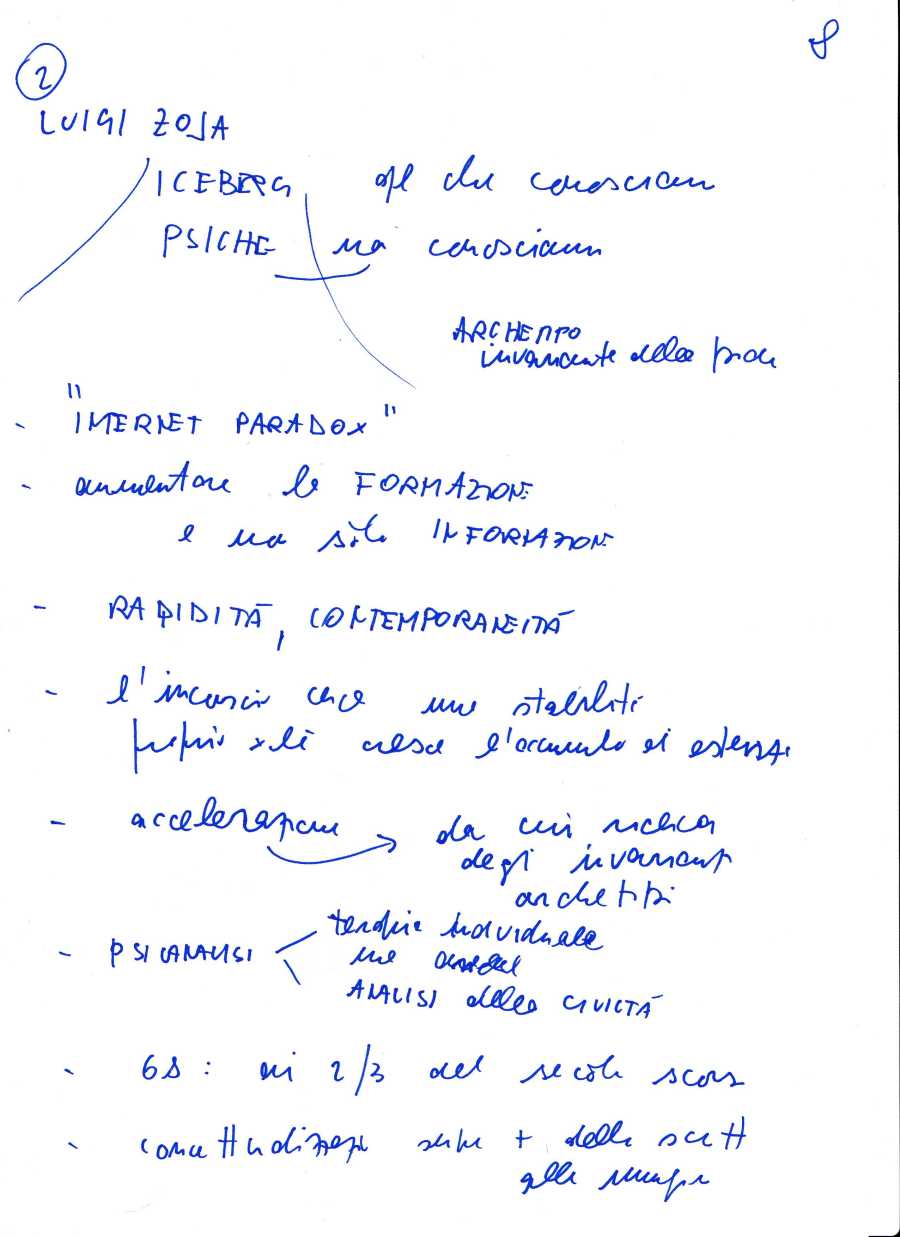 8
2
LUIGI ZOJA
ICEBERG qel che conosciam
PSICHE non conosciamo
ARCHETIPO
invariante della psiche
- "INTERNET PARADOX"
- aumentare la FORMAZIONE
e non solo INFORMAZIONE
- RAPIDITÀ, CONTEMPORANEITÀ
- l'inconscio cerca una stabilità
proprio xchè cresce l'accumulo di
- accelerazione da cui ricerca
degli invarianti
archetipi
- PSICANALISI terapia individuale
ma anche
ANALISI della CIVILTÀ
- 68: ai 2/3 del secolo scorso
- sempre + delle
alle